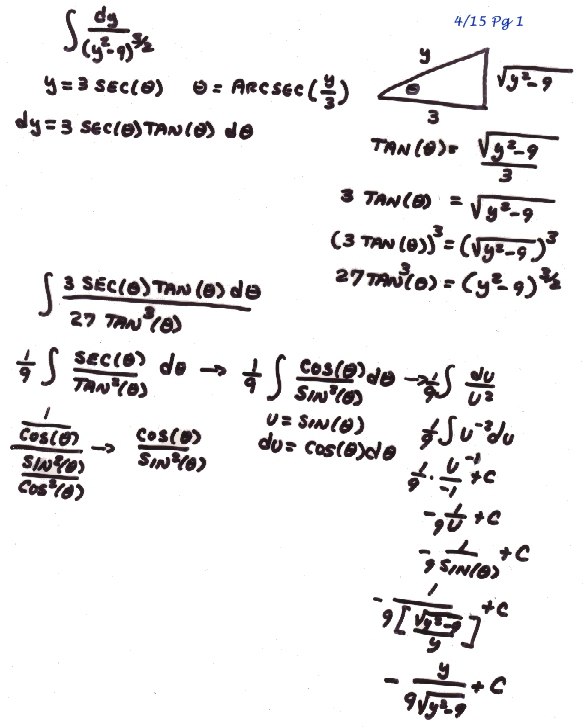 4/15 Pg 1
∫ dy/(y²-9)^3/2
y = 3 SEC(θ)   θ = ARCSEC(y/3)
dy = 3 SEC(θ) TAN(θ) dθ
y
θ
√y²-9
3
TAN(θ) = √y²-9/3
3 TAN(θ) = √y²-9
(3 TAN(θ))³ = (√y²-9)³
27 TAN³(θ) = (y²-9)^3/2
∫ 3 SEC(θ) TAN(θ) dθ/27 TAN³(θ)
1/9 ∫ SEC(θ)/TAN²(θ) dθ → 1/9 ∫ COS(θ)/SIN²(θ) dθ → 1/9 ∫ du/u²
1/COS(θ)/SIN²(θ)/COS²(θ) → COS(θ)/SIN²(θ)
u = SIN(θ)
du = COS(θ) dθ
1/9 ∫ u⁻² du
1/9 · u⁻¹/-1 + C
- 1/9u + C
- 1/9 SIN(θ) + C
- 1/9[√y²-9/y] + C
- y/9√y²-9 + C